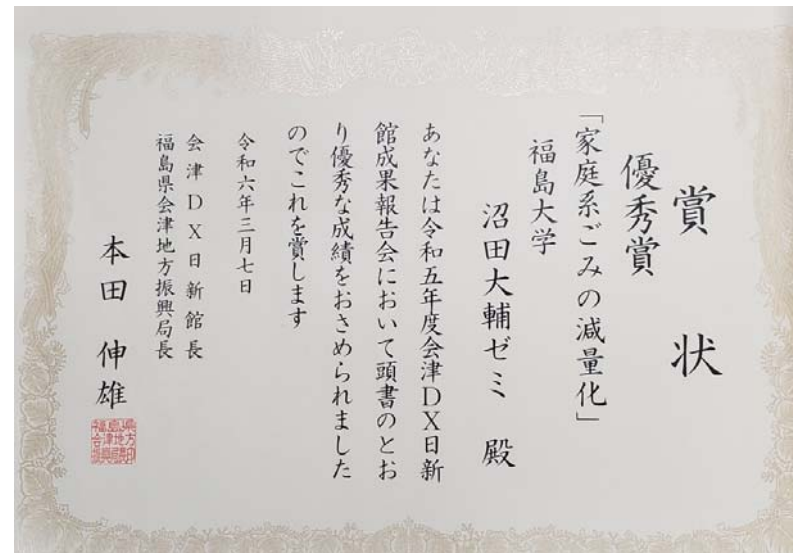 賞状
優秀賞
「家庭系ごみの減量化」
福島大学
沼田大輔ゼミ 殿
あなたは令和五年度会津DX日新
館成果報告会において頭書のとお
り優秀な成績をおさめられました
のでこれを賞します
令和六年三月七日
会津DX日新館長
福島県会津地方振興局長
本田 伸雄